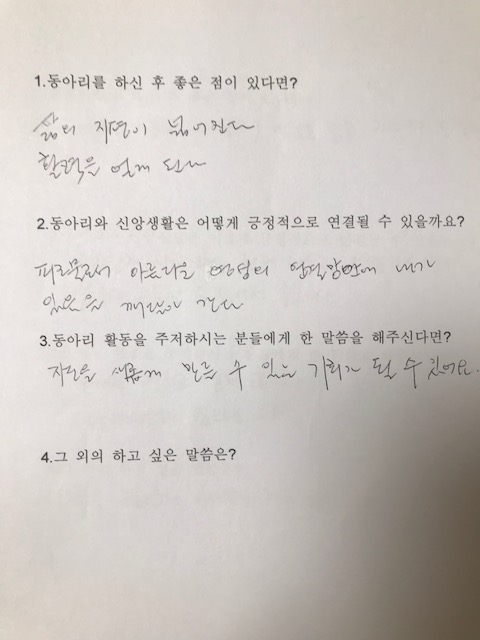 1.동아리를 하신 후 좋은 점이 있다면?
삶의 지평이 넓어진다
활력을 얻게 된다
2.동아리와 신앙생활은 어떻게 긍정적으로 연결될 수 있을까요?
아름다운 내가
있음을 깨달아 간다
3.동아리 활동을 주저하시는 분들에게 한 말씀을 해주신다면?
새롭게 만들 수 있는 기회가 될 수 있어요.
4.그 외의 하고 싶은 말씀은?